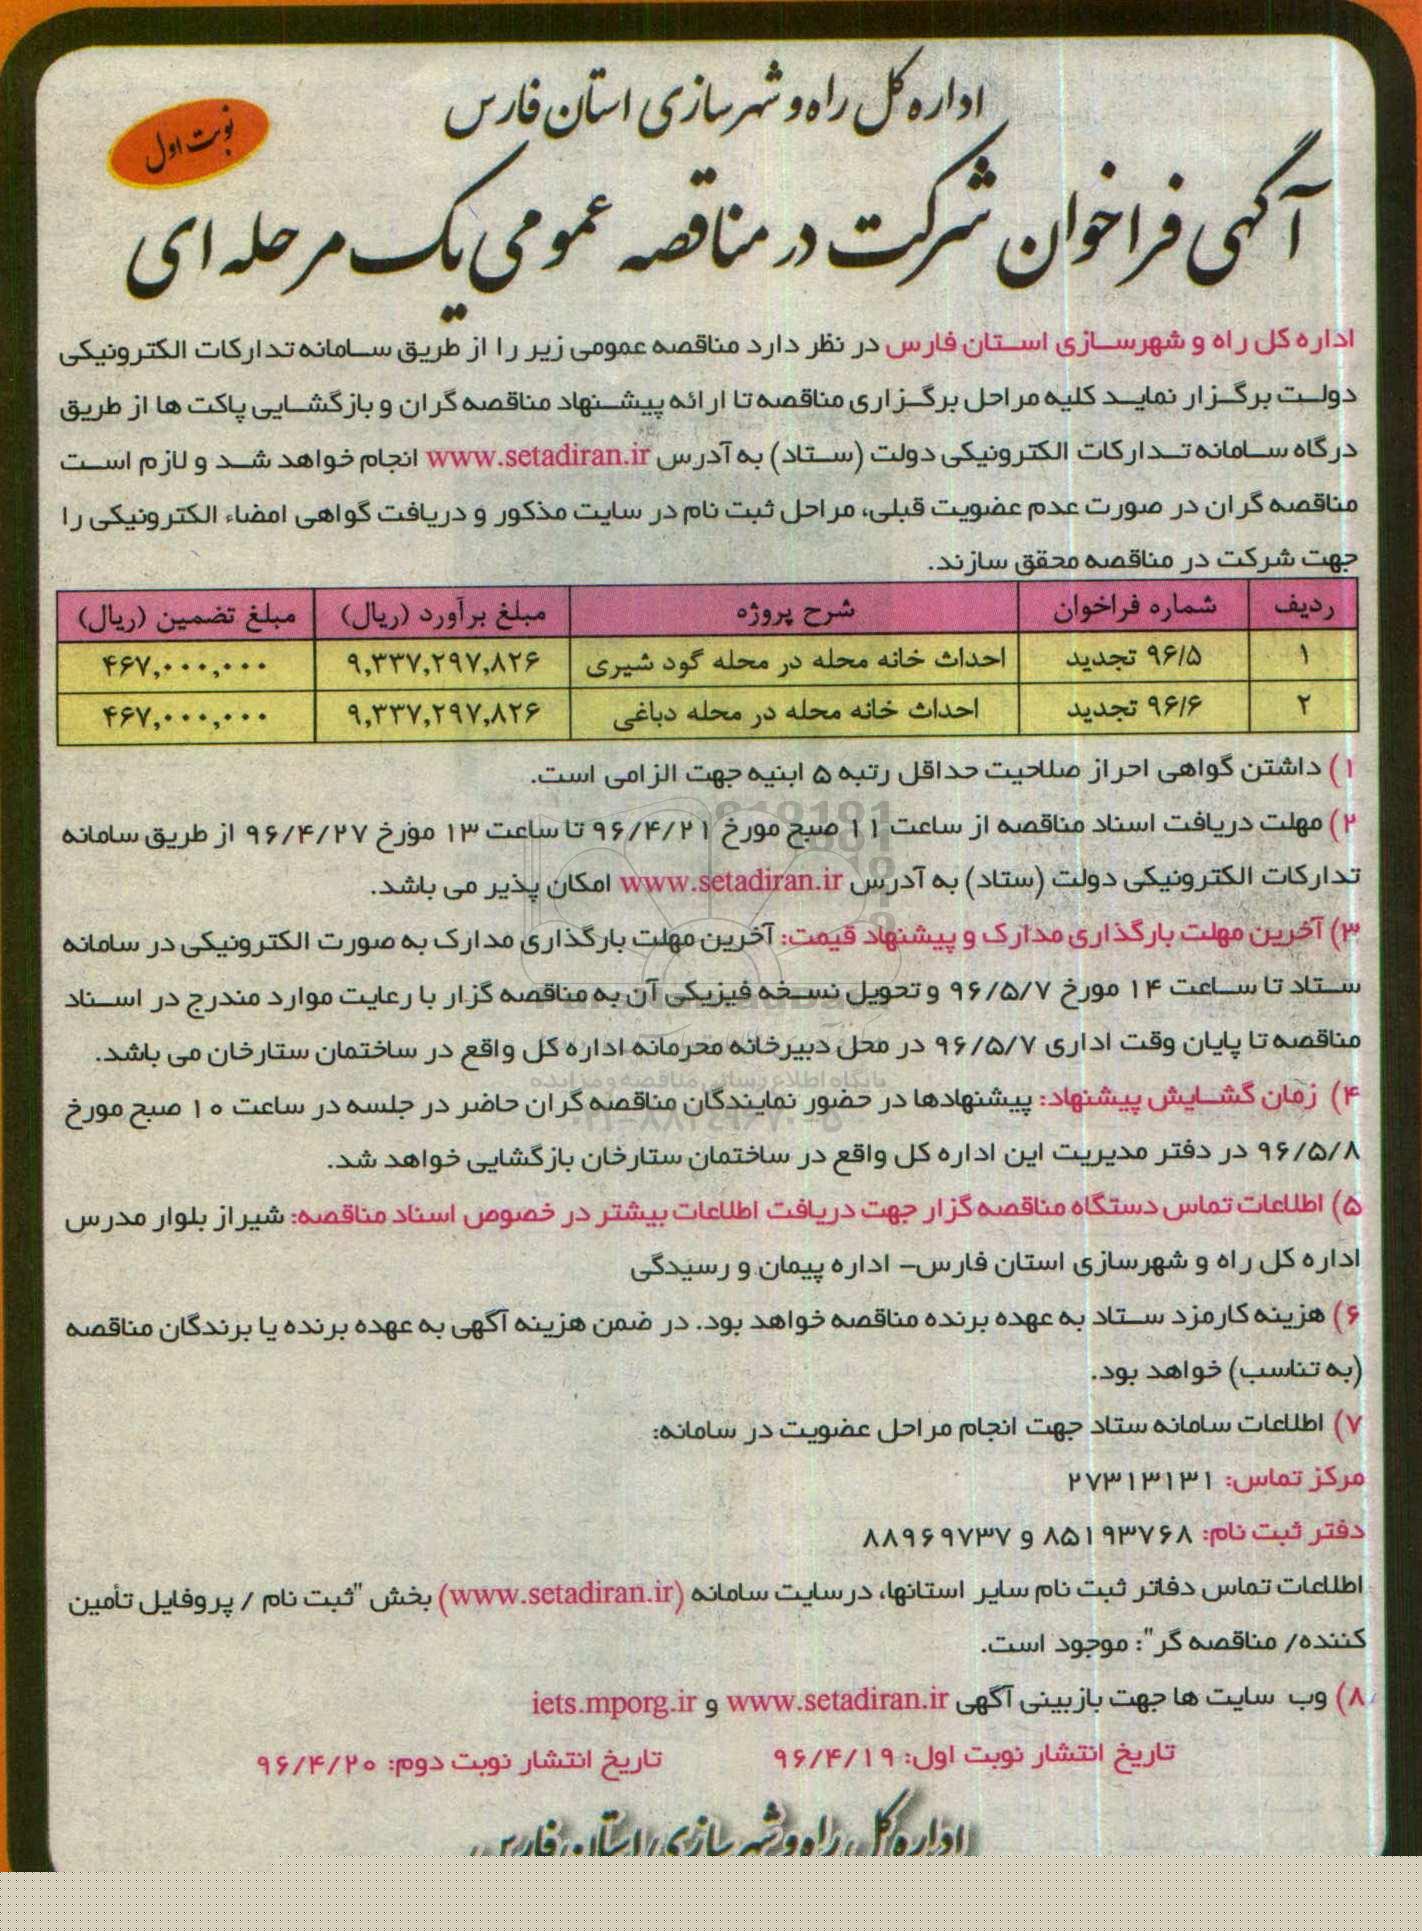 اداره کل راه و شهرسازی استان فارس
نوبت اول
آگهی فراخوان شرکت در مناقصه عمومی یک مرحله ای
اداره کل راه و شهرسازی استان فارس در نظر دارد مناقصه عمومی زیر را از طریق سامانه تدارکات الکترونیکی
دولت برگزار نماید کلیه مراحل برگزاری مناقصه تا ارائه پیشنهاد مناقصه گران و بازگشایی پاکت ها از طریق
درگاه سامانه تدارکات الکترونیکی دولت (ستاد) به آدرس www.setadiran.ir انجام خواهد شد و لازم است
مناقصه گران در صورت عدم عضویت قبلی، مراحل ثبت نام در سایت مذکور و دریافت گواهی امضاء الکترونیکی را
جهت شرکت در مناقصه محقق سازند.
ردیف شماره فراخوان شرح پروژه مبلغ برآورد (ریال) مبلغ تضمین (ریال)
۱ ۹۶/۵ تجدید احداث خانه محله در محله گود شیری ۹,۳۳۷,۲۹۷,۸۲۶ ۴۶۷,۰۰۰,۰۰۰
۲ ۹۶/۶ تجدید احداث خانه محله در محله دباغی ۹,۳۳۷,۲۹۷,۸۲۶ ۴۶۷,۰۰۰,۰۰۰
۱) داشتن گواهی احراز صلاحیت حداقل رتبه ۵ ابنیه جهت الزامی است.
۲) مهلت دریافت اسناد مناقصه از ساعت ۱۱ صبح مورخ ۹۶/۴/۲۱ تا ساعت ۱۳ مورخ ۹۶/۴/۲۷ از طریق سامانه
تدارکات الکترونیکی دولت (ستاد) به آدرس www.setadiran.ir امکان پذیر می باشد.
۳) آخرین مهلت بارگذاری مدارک و پیشنهاد قیمت: آخرین مهلت بارگذاری مدارک به صورت الکترونیکی در سامانه
ستاد تا ساعت ۱۴ مورخ ۹۶/۵/۷ و تحویل نسخه فیزیکی آن به مناقصه گزار با رعایت موارد مندرج در اسناد
مناقصه تا پایان وقت اداری ۹۶/۵/۷ در محل دبیرخانه محرمانه اداره کل واقع در ساختمان ستارخان می باشد.
۴) زمان گشایش پیشنهاد: پیشنهادها در حضور نمایندگان مناقصه گران حاضر در جلسه در ساعت ۱۰ صبح مورخ
۹۶/۵/۸ در دفتر مدیریت این اداره کل واقع در ساختمان ستارخان بازگشایی خواهد شد.
۵) اطلاعات تماس دستگاه مناقصه گزار جهت دریافت اطلاعات بیشتر در خصوص اسناد مناقصه: شیراز بلوار مدرس
اداره کل راه و شهرسازی استان فارس– اداره پیمان و رسیدگی
۶) هزینه کارمزد ستاد به عهده برنده مناقصه خواهد بود. در ضمن هزینه آگهی به عهده برنده یا برندگان مناقصه
(به تناسب) خواهد بود.
۷) اطلاعات سامانه ستاد جهت انجام مراحل عضویت در سامانه:
مرکز تماس: ۲۷۳۱۳۱۳۱
دفتر ثبت نام: ۸۵۱۹۳۷۶۸ و ۸۸۹۶۹۷۳۷
اطلاعات تماس دفاتر ثبت نام سایر استانها، درسایت سامانه (www.setadiran.ir) بخش "ثبت نام / پروفایل تأمین
کننده/ مناقصه گر": موجود است.
۸) وب سایت ها جهت بازبینی آگهی www.setadiran.ir و iets.mporg.ir
تاریخ انتشار نوبت اول: ۹۶/۴/۱۹ تاریخ انتشار نوبت دوم: ۹۶/۴/۲۰
اداره کل راه و شهرسازی استان فارس